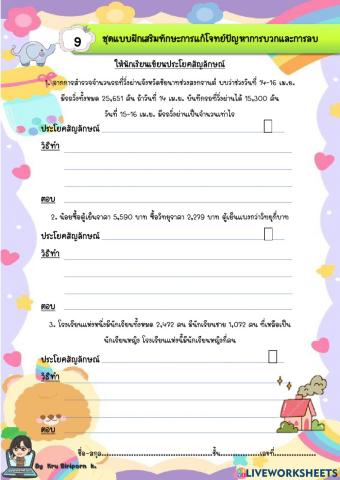 9
ชุดแบบฝึกเสริมทักษะการแก้โจทย์ปัญหาการบวกและการลบ
ให้นักเรียนเขียนประโยคสัญลักษณ์
1. จากการสำรวจจำนวนรถที่วิ่งผ่านจังหวัดชัยนาทช่วงสงกรานต์ พบว่าช่วงวันที่ 14-16 เม.ย.
มีรถวิ่งทั้งหมด 25,651 คัน ถ้าวันที่ 14 เม.ย. บันทึกรถที่วิ่งผ่านได้ 15,300 คัน
วันที่ 15-16 เม.ย. มีรถวิ่งผ่านเป็นจำนวนเท่าไร
ประโยคสัญลักษณ์
วิธีทำ
ตอบ
2. น้อยซื้อตู้เย็นราคา 5,590 บาท ซื้อวิทยุราคา 2,279 บาท ตู้เย็นแพงกว่าวิทยุกี่บาท
ประโยคสัญลักษณ์
วิธีทำ
ตอบ
3. โรงเรียนแห่งหนึ่งมีนักเรียนทั้งหมด 2,472 คน มีนักเรียนชาย 1,072 คน ที่เหลือเป็น
นักเรียนหญิง โรงเรียนแห่งนี้มีนักเรียนหญิงกี่คน
ประโยคสัญลักษณ์
วิธีทำ
ตอบ
ชื่อ-สกุล..............................ชั้น..............เลขที่..............
By Kru Siriporn K.
LIVEWORKSHEETS